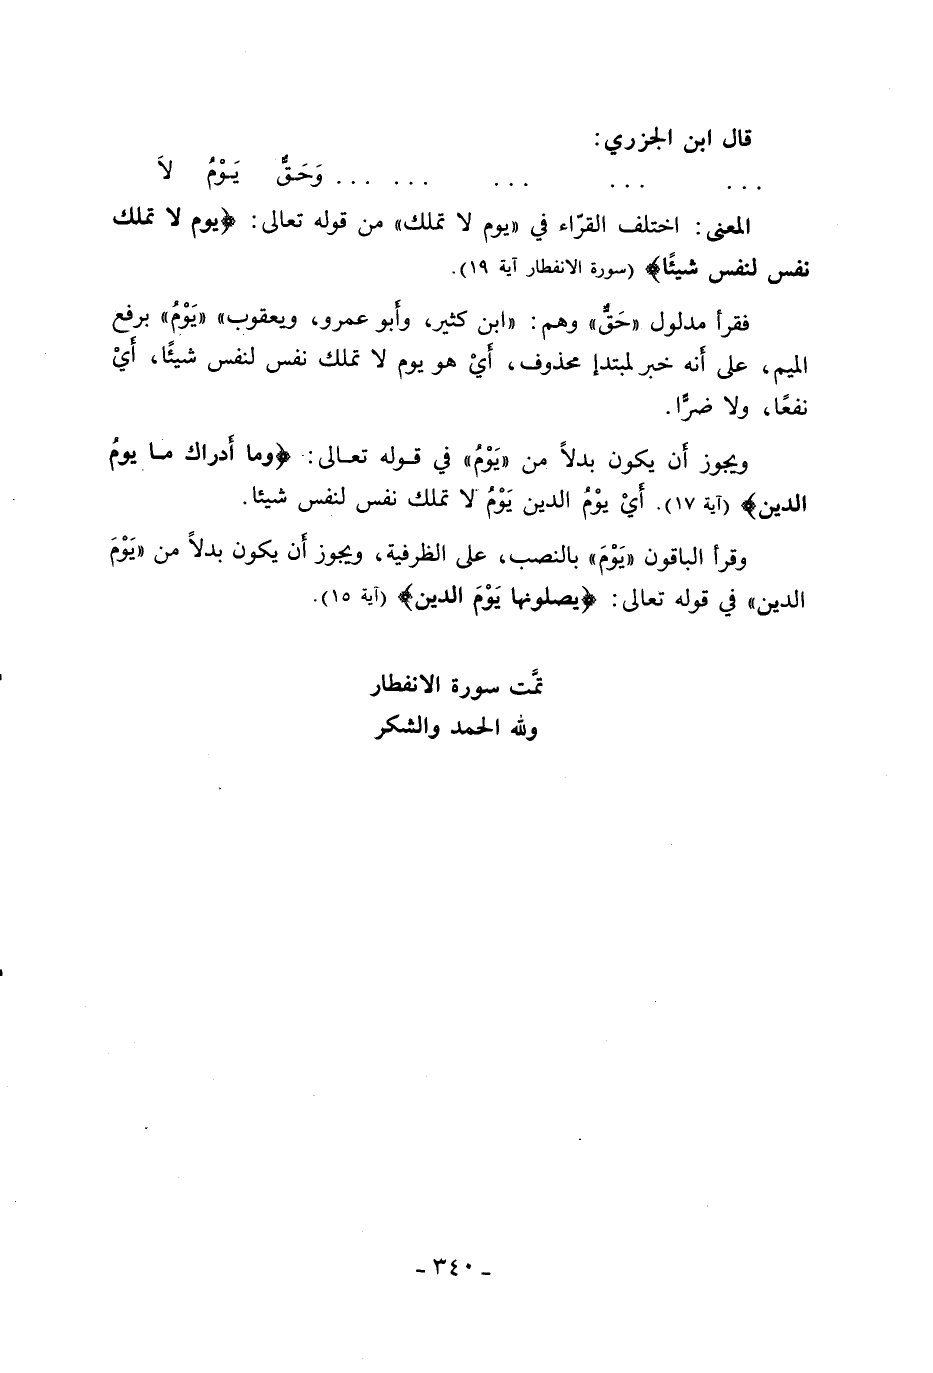 قال ابن الجزري:
... ... ... ... ... وَحَقٌّ يَوْمُ لاَ
المعنى: اختلف القرّاء في «يوم لا تملك» من قوله تعالى: ﴿يوم لا تملك
نفس لنفس شيئًا﴾ (سورة الانفطار آية ١٩).
فقرأ مدلول «حَقٌّ» وهم: «ابن كثير، وأَبو عمرو، ويعقوب» «يَوْمُ» برفع
الميم، على أَنه خبر لمبتدإ محذوف، أَيْ هو يوم لا تملك نفس لنفس شيئًا، أَيْ
نفعًا، ولا ضرًّا.
ويجوز أَن يكون بدلاً من «يَوْمُ» في قوله تعالى: ﴿وما أَدراك ما يومُ
الدين﴾ (آية ١٧). أَيْ يوْمُ الدين يَوْمُ لا تملك نفس لنفس شيئا.
وقرأ الباقون «يَوْمَ» بالنصب، على الظرفية، ويجوز أَن يكون بدلاً من «يَوْمَ
الدين» في قوله تعالى: ﴿يصلونها يَوْمَ الدين﴾ (آية ١٥).
تمَّت سورة الانفطار
ولله الحمد والشكر
- ٣٤٠ -